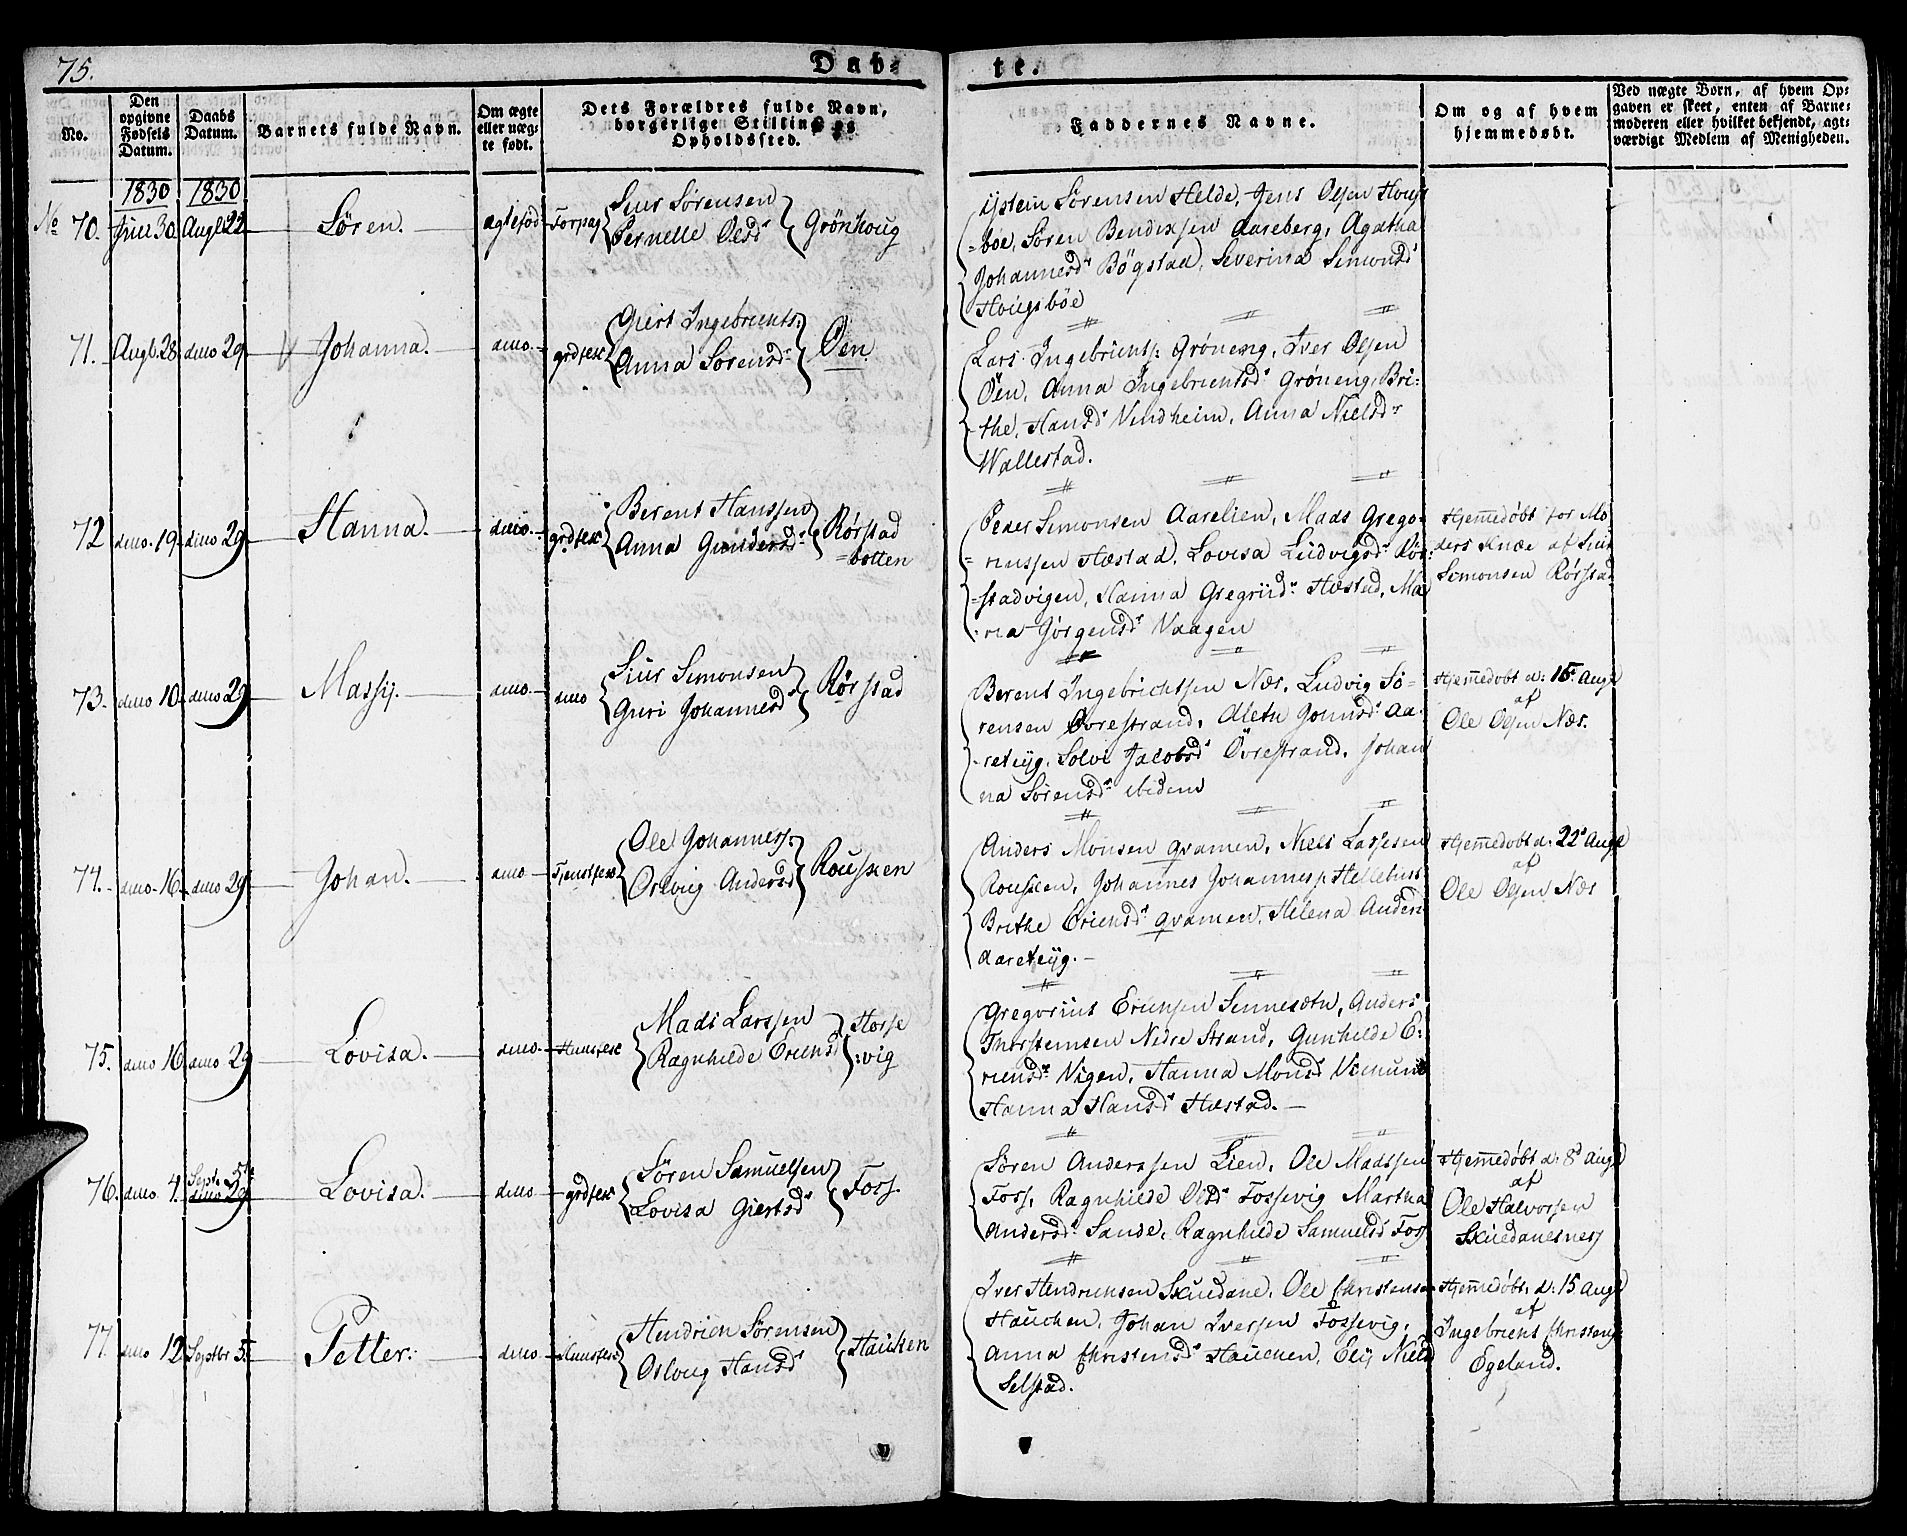 75.
Dab-
te.
No.
Den opgivne Fødsels Datum.
Daabs Datum.
Barnets fulde Navn.
Om ægte eller uæg-te født.
Dets Forældres fulde Navn, borgerlige Stilling og Opholdssted.
Faddernes Navne.
Om og af hvem hjemmedøbt.
Ved uægte Børn, af hvem Op-
gaven er skeet, enten af Barne-
moderen eller hvilket bekjendt, agt-
værdigt Medlem af Menigheden.
1830 1830
No 70. Juni 30 Augt 22 Sören. ægtefød
Siur Sörensen
Pernelle Olsdr Grönhoug
Sörensen Helde, Jens Olsen Houg
=böe, Sören Bendixsen Aareberg, Agatha
Johannesdr Bögstad, Severina Simonsdr
Hougsböe
71. Augt. 28. dmo 29 Johanna. dmo.
Giert Ingebrickts:
grdfsk Anna Sorensdr Øen
Lars Ingebrickts: Gröneng, Iver Olsen
Öen, Anna Ingebricktsdr Gröneng, Bri-
the, Hansdr Vindheim, Anna Nielsdr
Wallestad.
72 dmo. 19 dmo 29 Hanna. dmo.
Berent Hanssen
grdfsk Anna Gundersdr Rørstad
=botten
Peder Simonsen Aarelien, Mads Grego-
=riussen Hæstad, Lovisa Ludvigsdr Rør-
=stadvigen, Hanna Gregriid Hæstad, Ma
:ria Jörgensdr Vaagen
Hjemmedöbt for Mo
ders Knæ af Siur
Simonsen Rørstad
73. dmo 10. dmo 29 Massÿ. dmo. dmo
Siur Simonsen
Guri Johannesdr Rørstad
Berent Ingebrichtsen Næs, Ludvig Sö-
rensen Øvrestrand, Aletu Jonnsdr Aa-
-retüg, Solvi Jacobsdr Övrestrand, Johan
na Sörensdr ibidem
Hjemmedobt d: 15. Augt
af
Ole Olsen Næs.
74. dmo 16. dmo 29 Johan. dmo
Ole Johanness:
Oslvig Andersd Rousken
Anders Monsen Qvamen, Niels Larssen
Rousken, Johannes Johanness: Hellebust
Brithe Ericksdr Qvamen, Helena Anders
Aaretüg.
Hjemmedobt d: 22d Augt
af
Ole Olsen Næs
75. dmo 16 dmo 29 Lovisa. dmo.
Mads Larssen
Huusfsk Ragnhilde Ericksd Hosse
:vig
Gregorius Ericksen Sennesætn, Anders
Thorsteinsen Nedre Strand, Gunhilde E-
ricksdr Vigen, Hanna Monsd
Hanna Hansdr Hæstad.
76. dmo 4. Septr. 5te
dmo 29 Lovisa. dmo
grdfsk Sören Samuelsen
Lovisa Giertsdr Foss.
Sören Anderssen Lien, Ole Madssen
Foss, Ragnhilde Olsdr Fossevig Martha
Andersdr Sande, Ragnhilde Samuelsd Foss
Hjemmedöbt d: 8d Augt
af
Ole Halvorsen
Skuedanesnes
77. dmo 12 Septbr 5. Petter. dmo
Huusfsk Hendrick Sörensen
Osloug Hansdr Haücken
Iver Hendricksen Skuedane, Ole Christensen
Haücken, Johan Iversen Fossevig,
Anna Christensdr Haücken, Elÿ Niels
Selstad.
Hjemmedöbt d: 15 Augt
af
Ingebricht Christens:
Egeland.